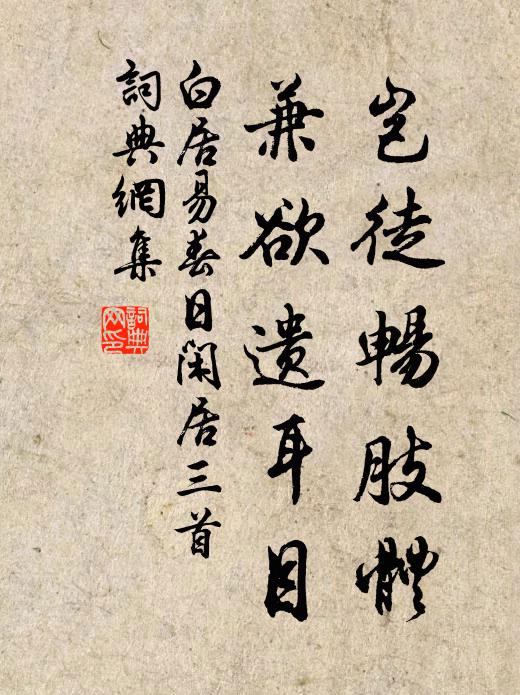 豈徒暢肢體
兼欲遺耳目
白居易春日閑居三首
詞典網集
詞典網印